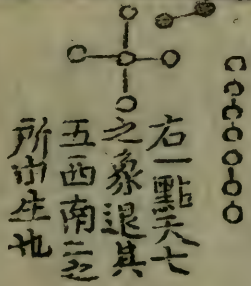 右一點天七
之象退其
五西南二之
所由生也